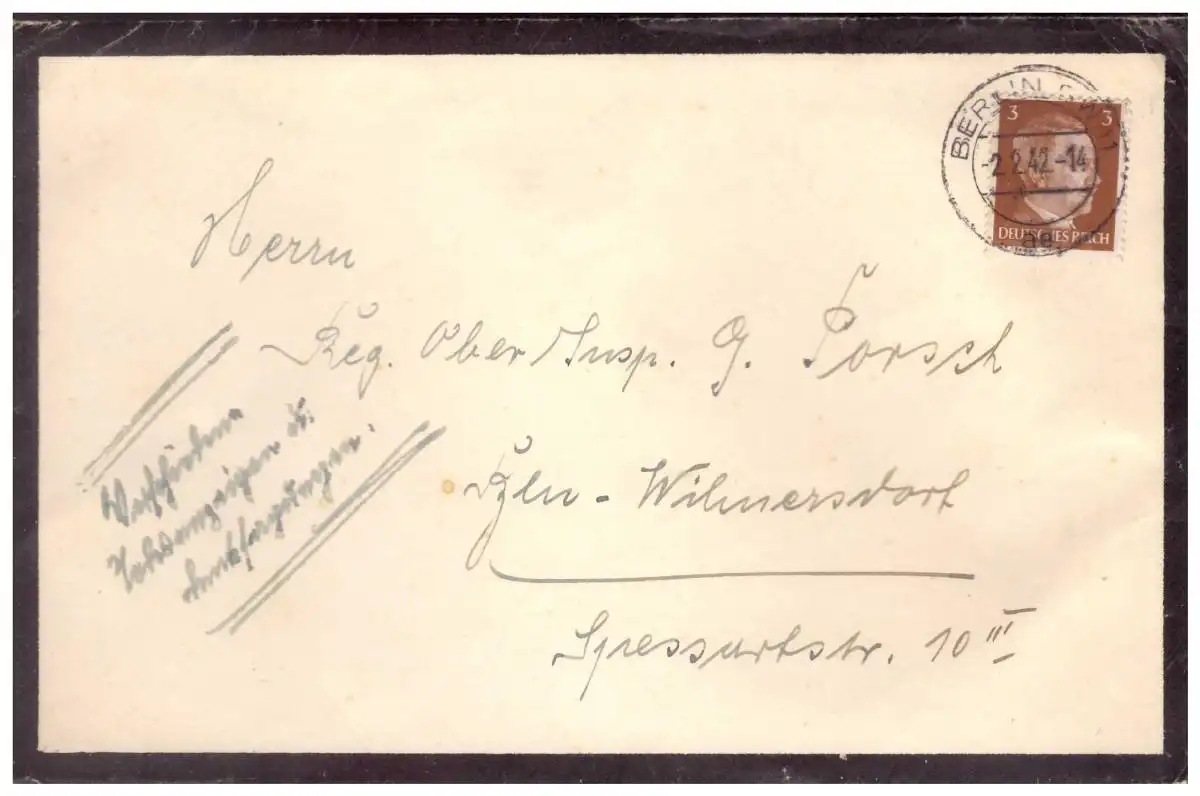 BERLIN SW 11
-2.2.42-14
ae
3 3
DEUTSCHES REICH
Herrn
Reg. Ober Insp. G. Porsch
Bln - Wilmersdorf
Spessartstr. 10 III
Verschiedene
Todesanzeigen u.
Danksagungen.